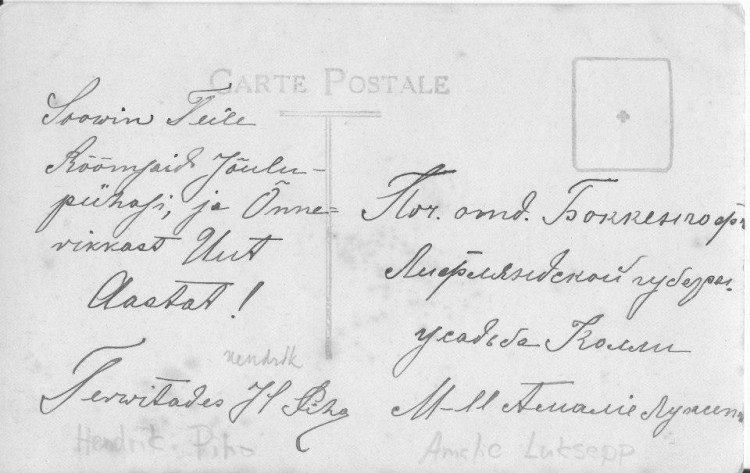 CARTE POSTALE
Soowin Teile
Rõõmsaid Jõulu-
pühasi, ja Õnne-
rikkast Uut
Aastat!
Hendrik
Terwitades H Piho
Hendrik Piho
Поч. отд. Боккенгоф
Лифляндской губерн.
усадьба Колли
М-ll Амалiе Луксеп
Amalie Luksepp